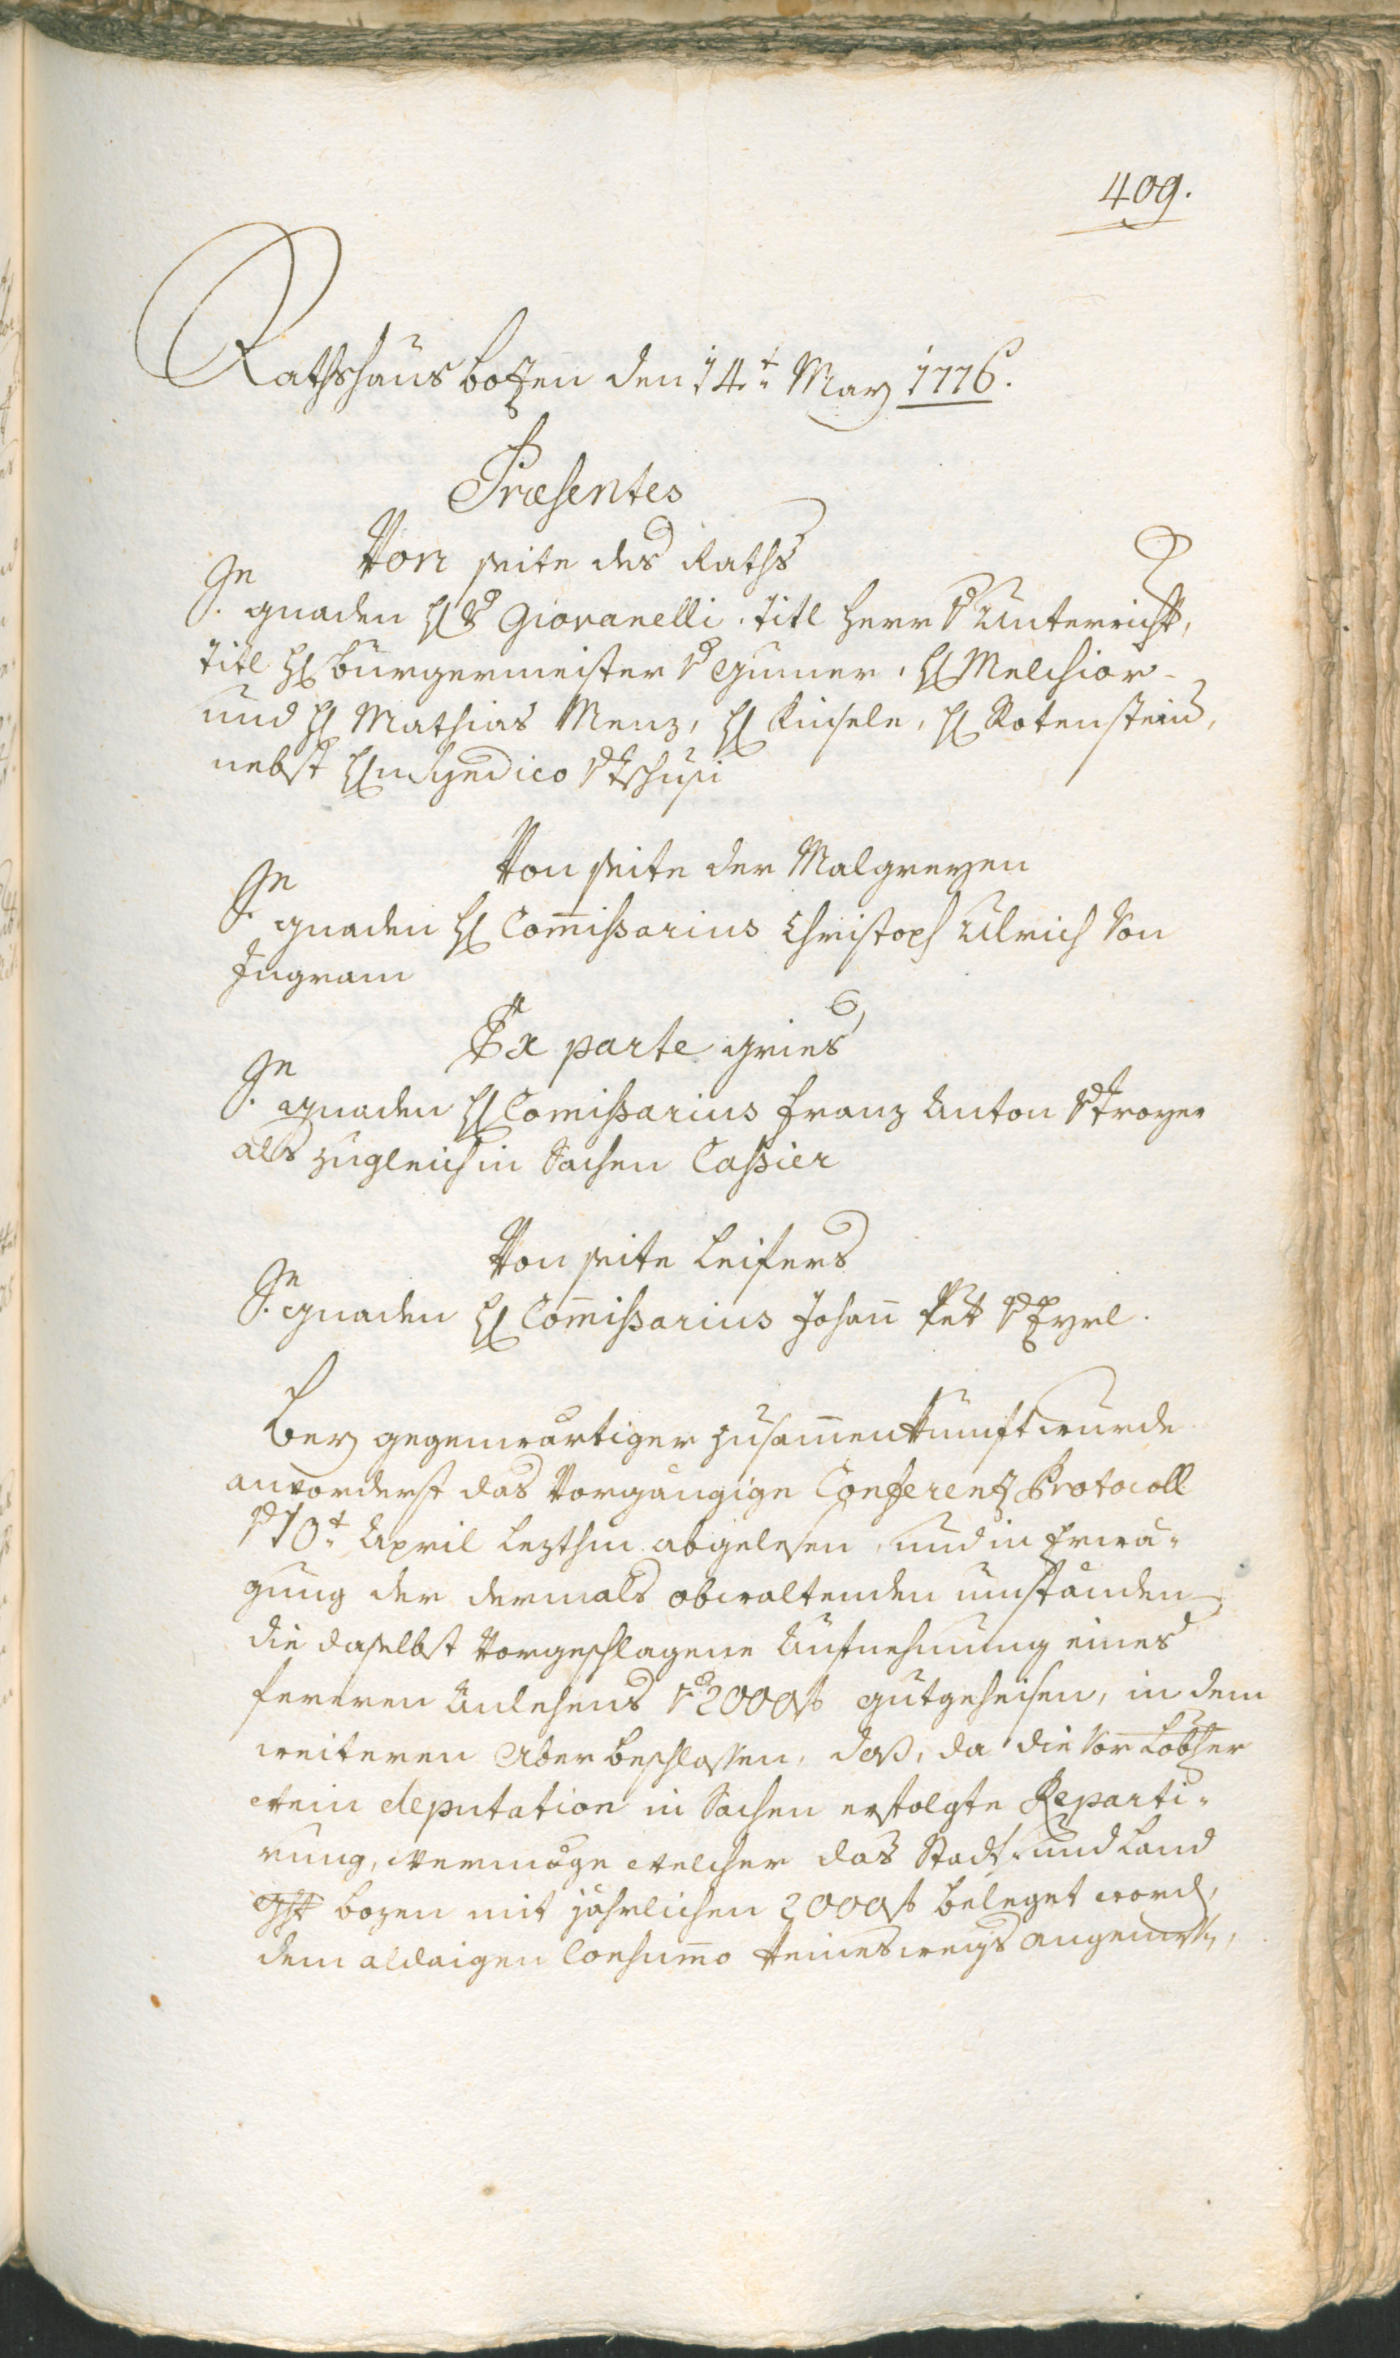 409.
Rathshaus Botzen den 14.t May 1776.
Præsentes
Von seite des Raths
Se Gnaden H v Giovanelli. titl Herr v Unterricht,
titl H Burgermeister v Gumer, H Melchior
und H Mathias Menz, H Kinsele, H Rotenstein,
nebst H Syndico v Tschusi
Von seite der Malgreyen
Se Gnaden H Com̄issarius Christoph Ulrich Von
Ingram
Ex parte Gries
Se Gnaden H Comissarius Franz Anton v Troyer
als zugleich in Sachen Cassier
Von seite Leifers
Se Gnaden H Com̄issarius Johan̄ Pet v Eyrl.
Bey gegenwärtiger zusam̄enkunft wurde
anvorderst das Vorgängige Conferentz Protocoll
v 10.t April lezthin abgelesen, und in Erwä-
gung der dermals obwaltenden umständen
die daselbst Vorgeschlagene Aufnehmung eines
fereren Anlehens v 2000f gutgeheisen, in dem
weiteren aber beschlossen, daß, da die Vor Löbher
wein deputation in Sachen erfolgte Reparti-
rung, vermöge welcher das Stadt und Land
Ght Bozen mit jährlichen 2000f beleget word,
dem aldaigen Consum̄o keineswegs angemess,